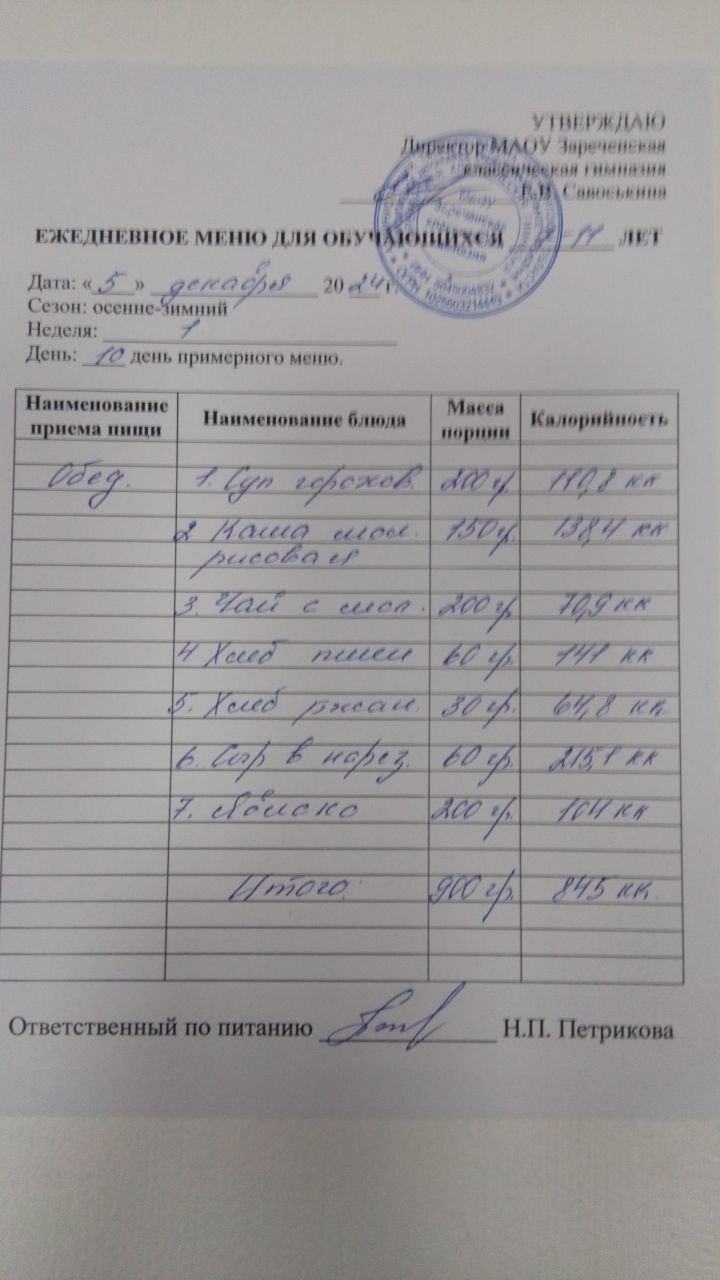 УТВЕРЖДАЮ
Директор МАОУ Зареченская
классическая гимназия
Савоськина
ЕЖЕДНЕВНОЕ МЕНЮ ДЛЯ ОБУЧАЮЩИХСЯ -11 ЛЕТ
Дата: «5» декабря 2024 г.
Сезон: осенне-зимний
Неделя: 1
День: 10 день примерного меню.
Наименование приема пищи Наименование блюда Масса порции Калорийность
Обед. 1. Суп горохов. 200 гр. 110,8 кк
2 Каша мол. 150 гр. 138,4 кк
рисовая
3. Чай с мол. 200 гр. 70,9 кк
4 Хлеб пшен 60 гр. 141 кк
5. Хлеб ржан. 30 гр. 64,8 кк
6. Сыр в нарез. 60 гр. 215,1 кк
7. Яблоко 200 гр. 104 кк
Итого: 900 гр. 845 кк.
Ответственный по питанию Н.П. Петрикова